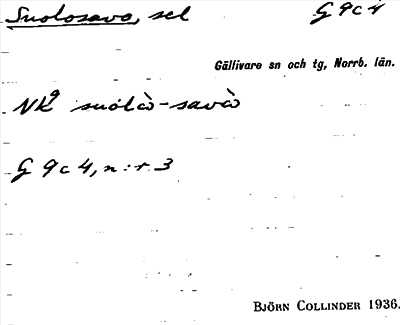 Suolosavo, sel G 9c4
Gällivare sn och tg, Norrb. län.
NKº suολὰ-savὰ
G 9c4, n:r 3
BJÖRN COLLINDER 1936.